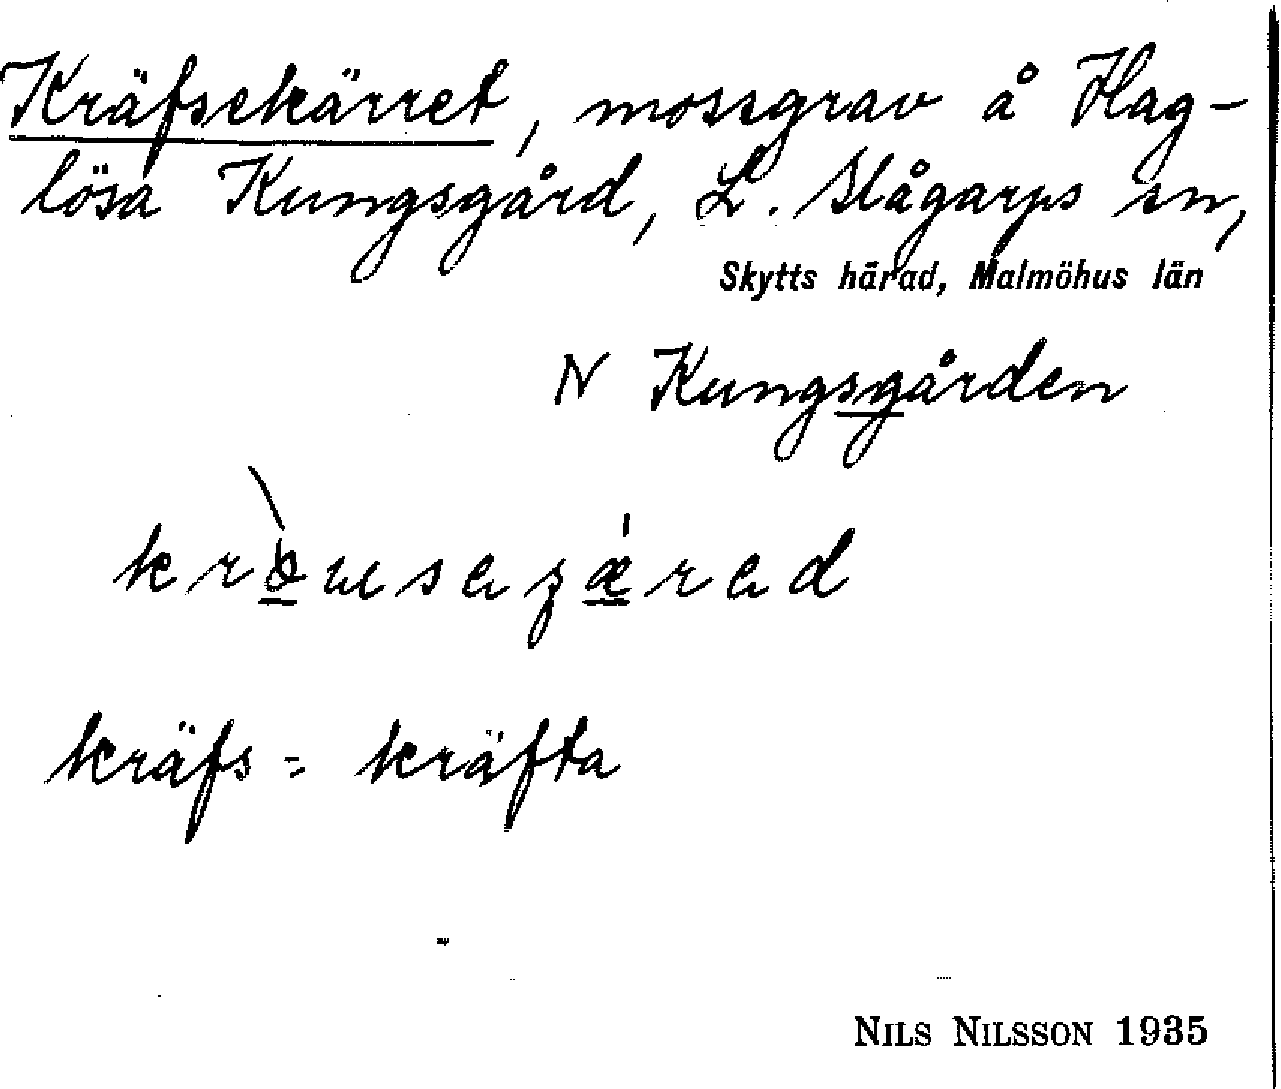 Kräfsekärret, mossgrav å Hag-
lösa Kungsgård, L. Slågarps sn,
Skytts härad, Malmöhus län
N Kungsgården
kräfs = kräfta
NILS NILSSON 1935